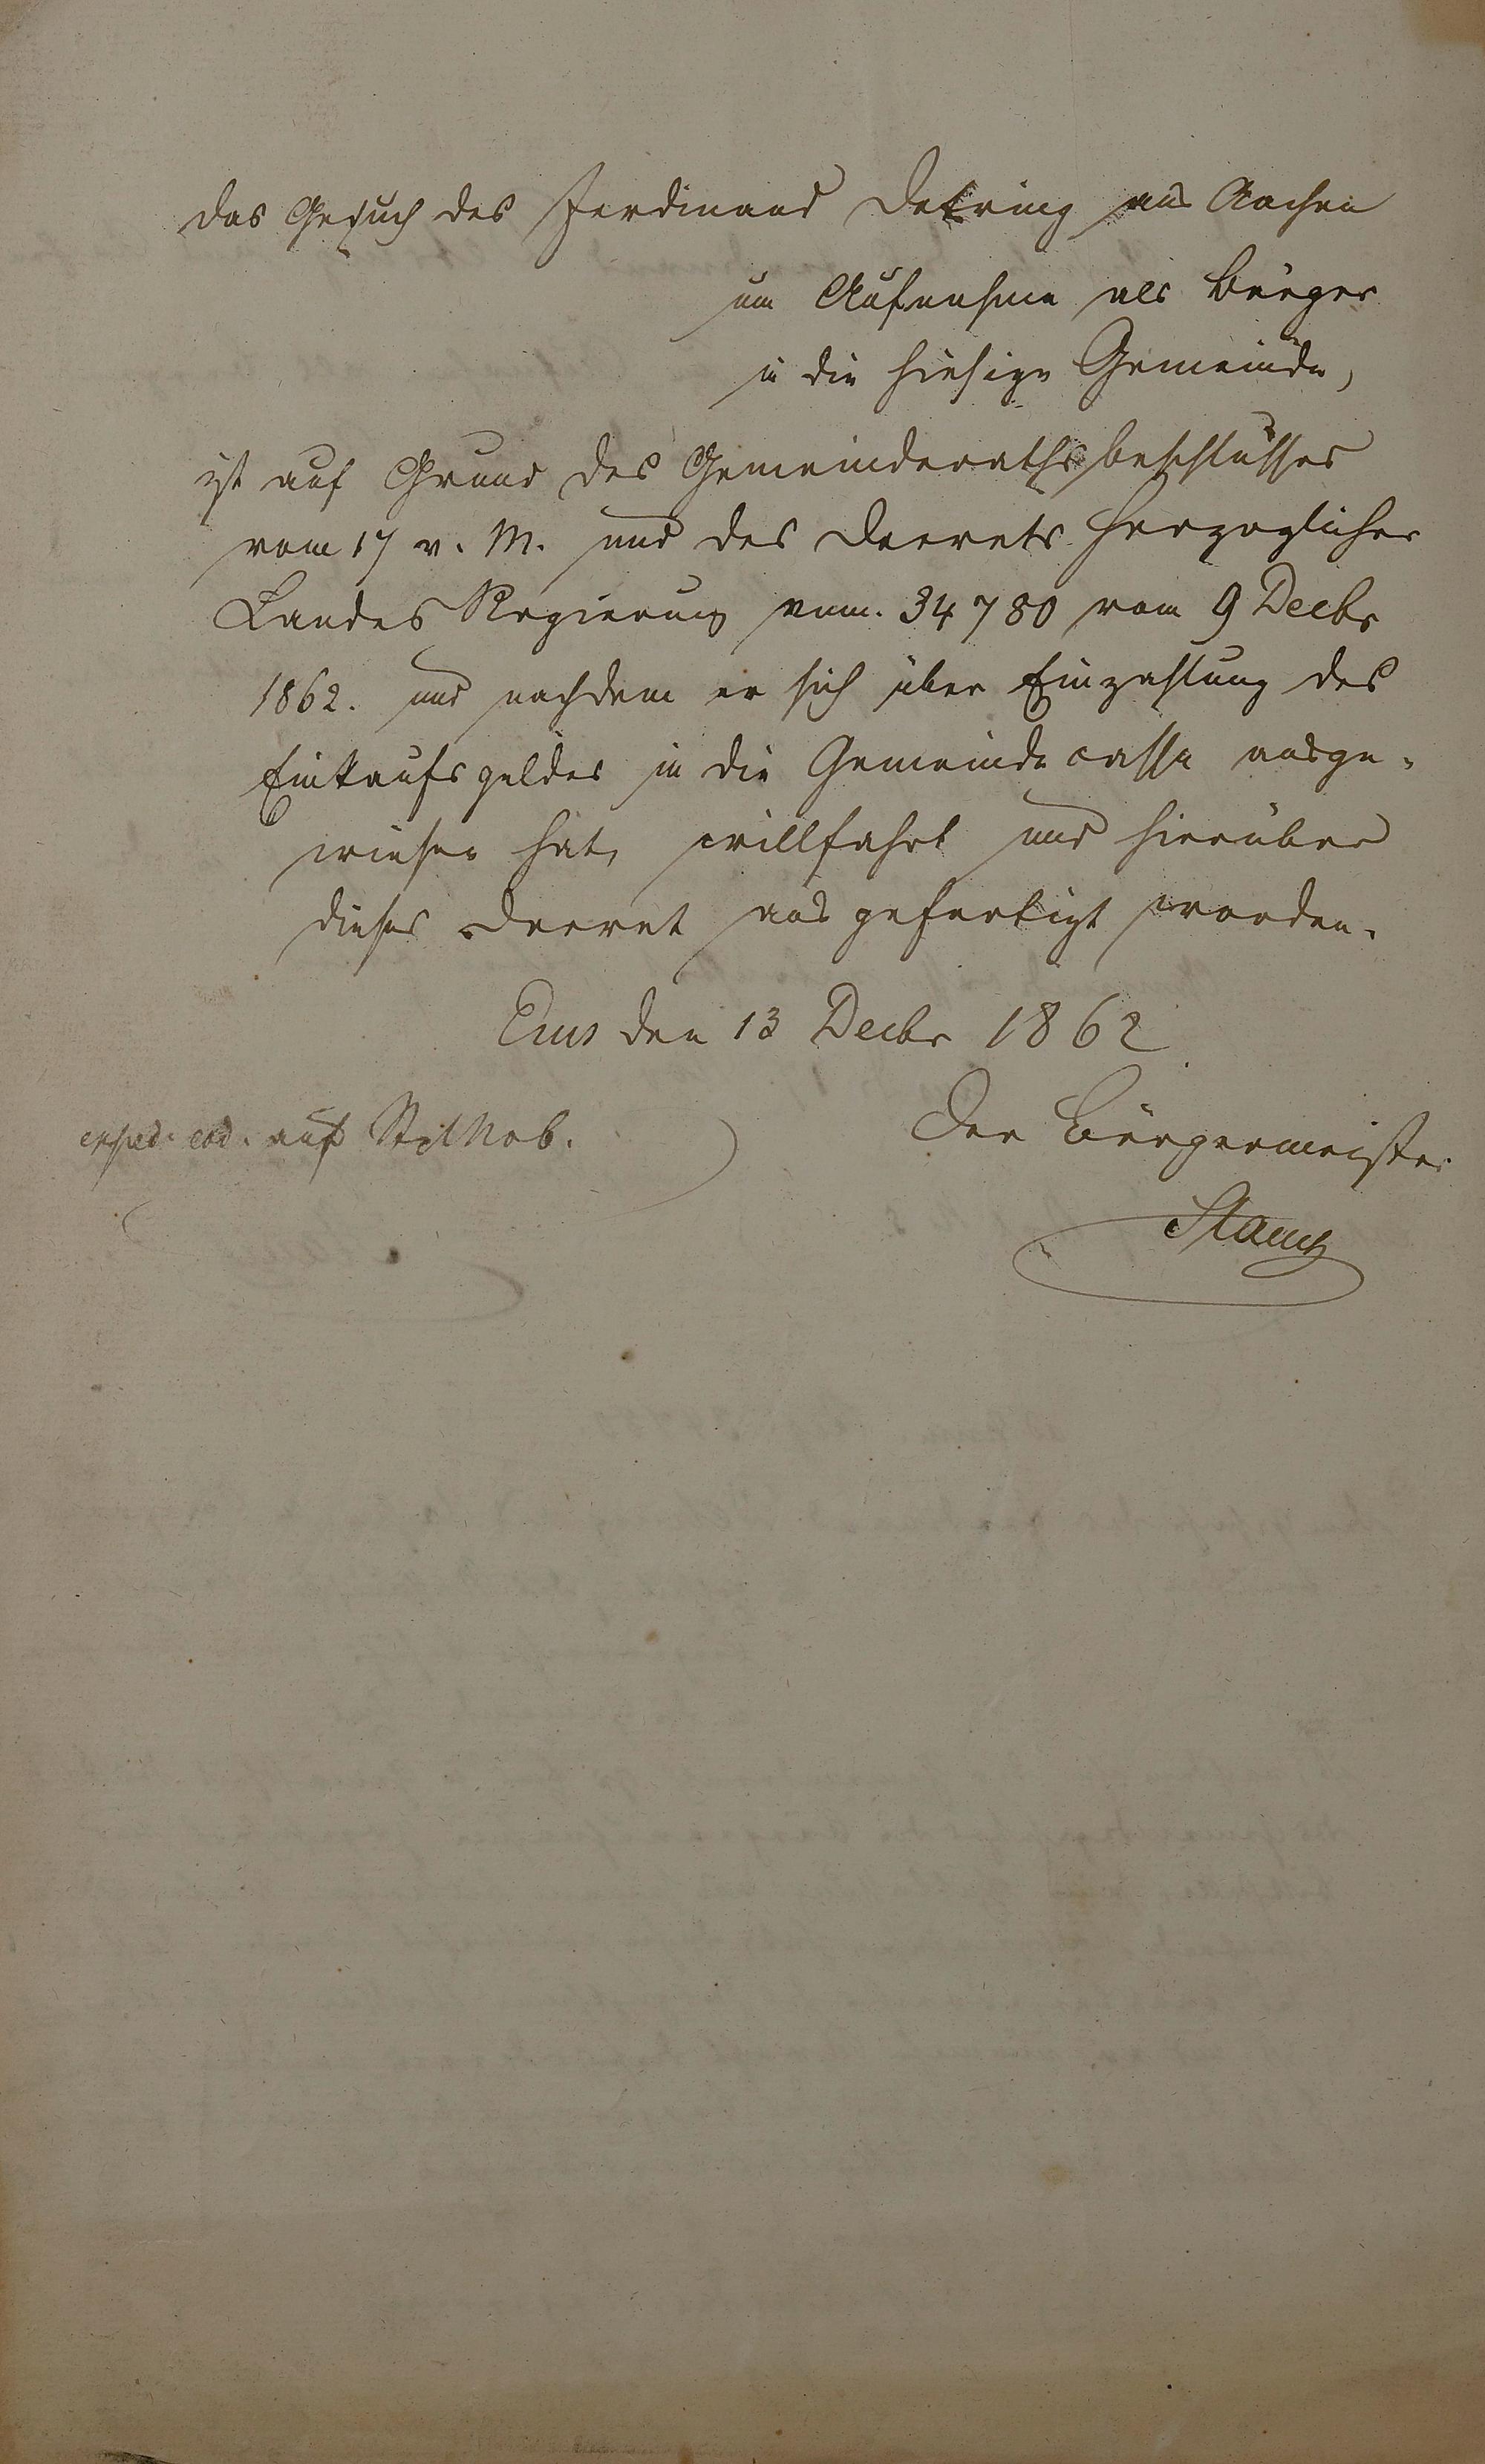 Das Gesuch des Ferdinand Detring aus Aachen
um Aufnahme als Bürger
in die hiesige Gemeinde,
ist auf Grund des Gemeinderathsbeschlusses
vom 17 v. M. und des Decrets Herzoglicher
Landes Regierung num. 34780 vom 9 Decbr
1862. und nachdem er sich über Einzahlung des
Einkaufsgeldes in die Gemeindecasse ausge-
wiesen hat, willfahrt und hierüber
dieses Decret ausgefertigt worden.
Ems den 13 Decbr 1862.
Der Bürgermeister
exped. eod. auf